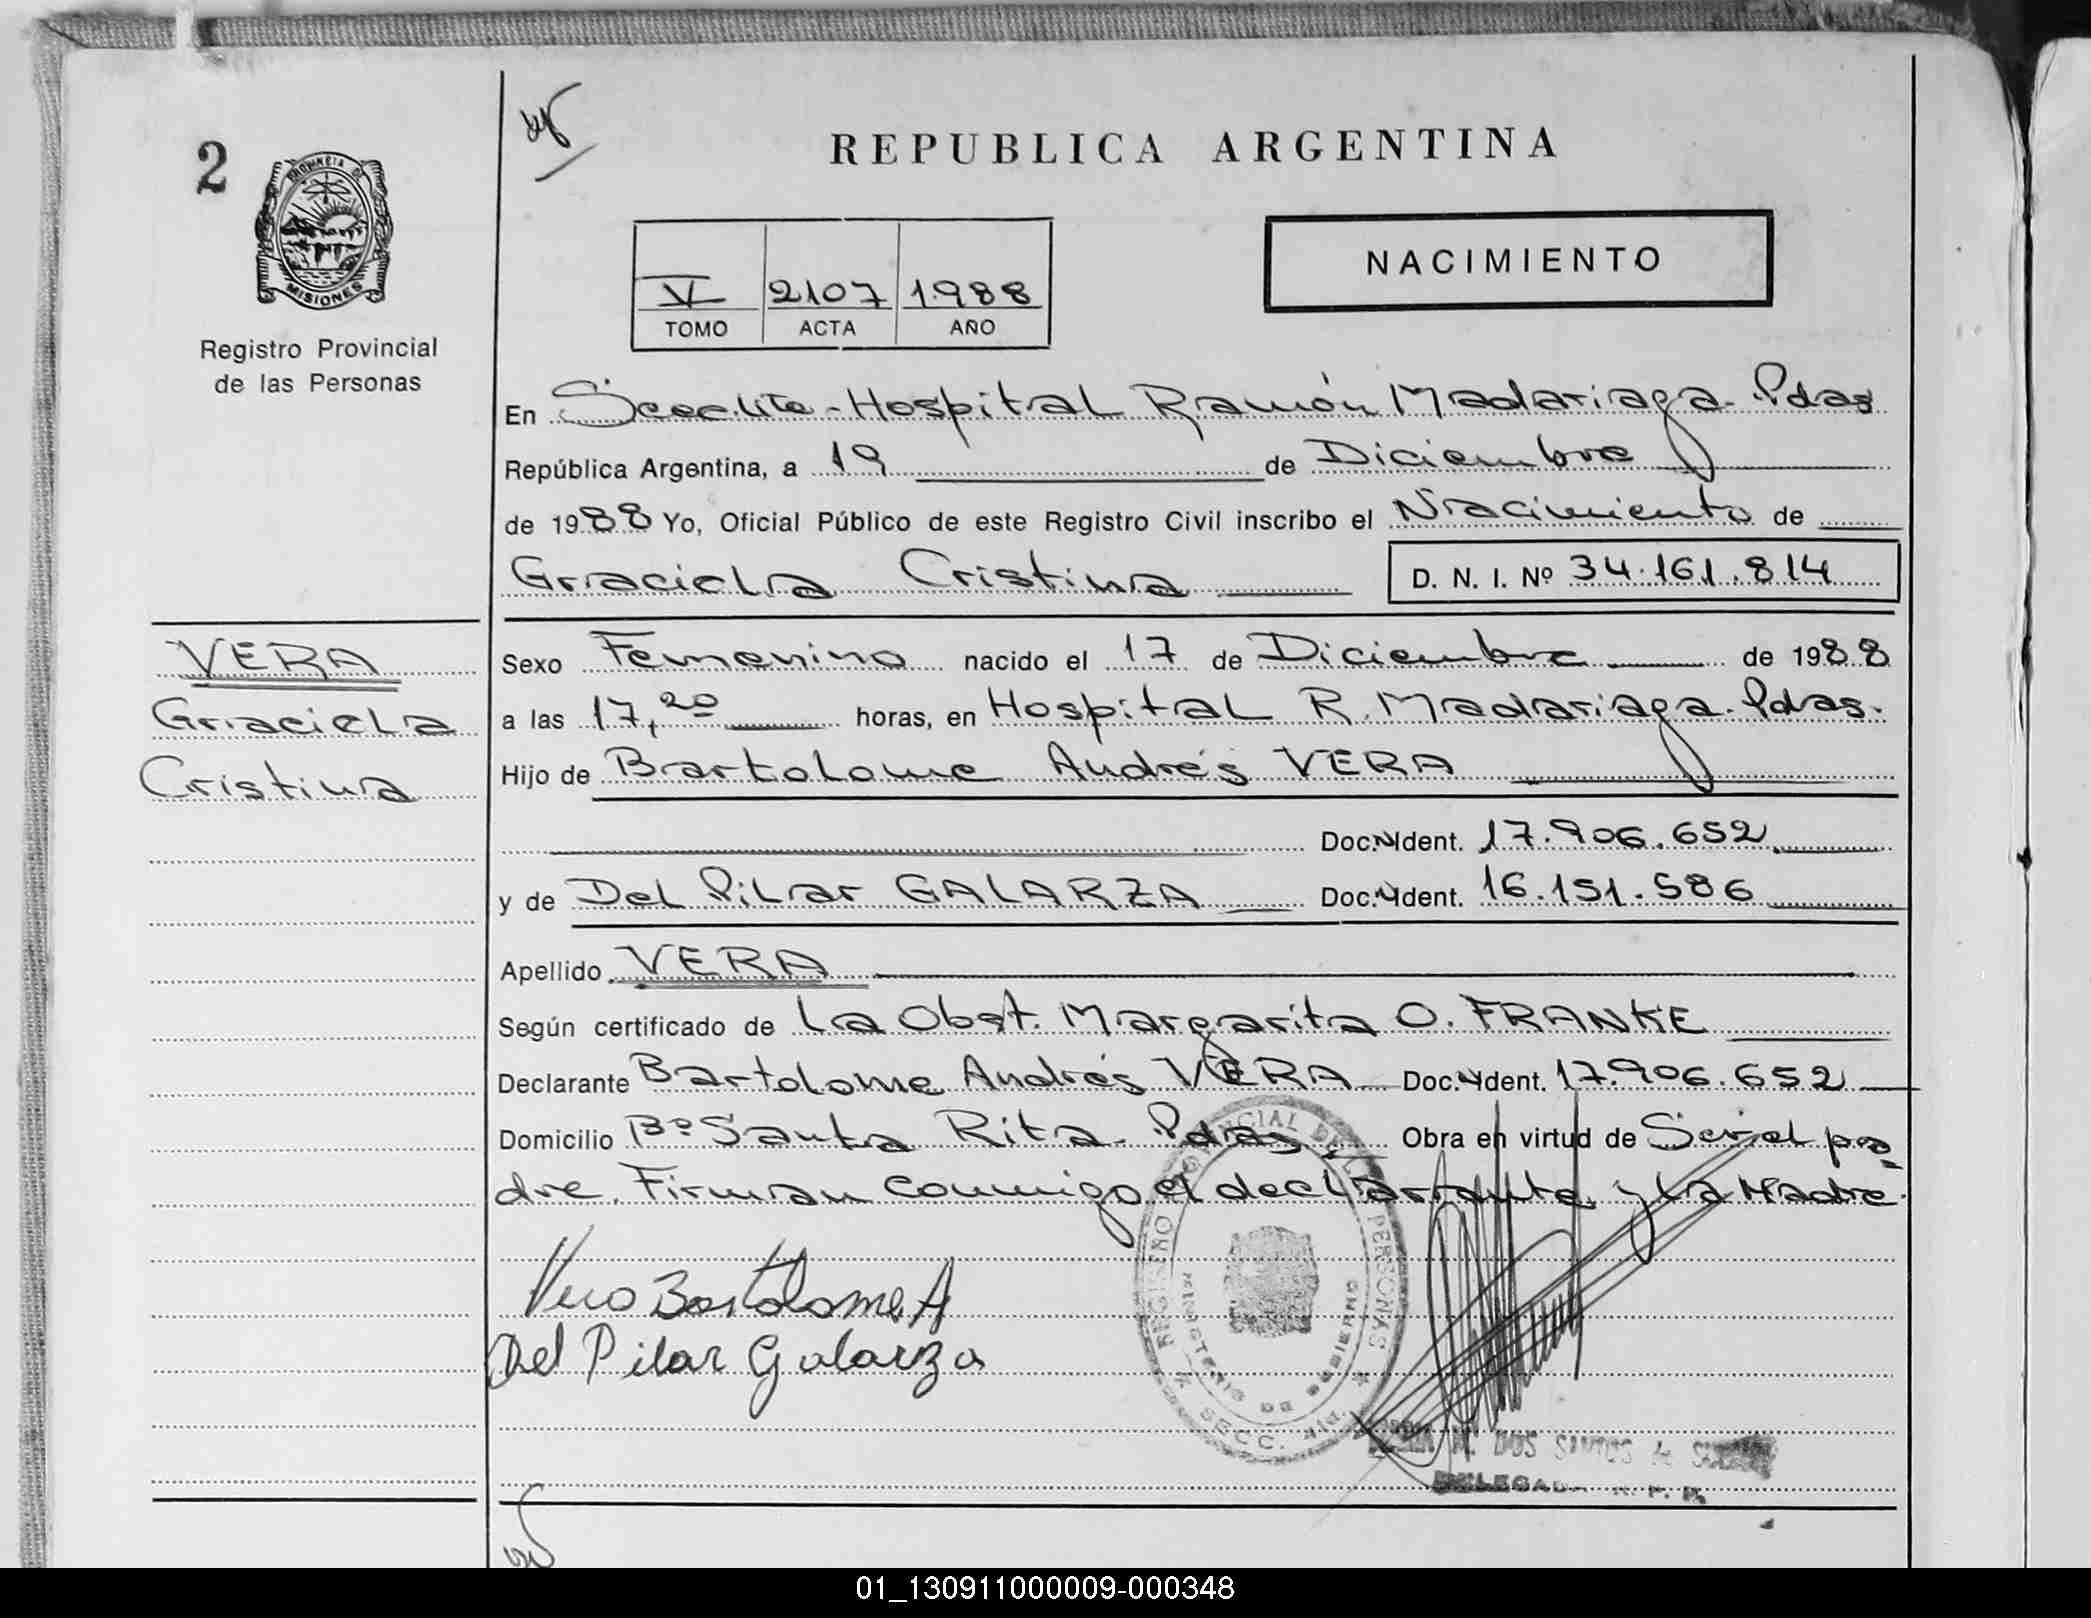 2
PROVINCIA DE
MISIONES
Registro Provincial
de las Personas
REPUBLICA ARGENTINA
NACIMIENTO
V 2107 1988
TOMO ACTA AÑO
En Hospital Ramón Madariaga. Pdas
República Argentina, a 19 de Diciembre
de 1988 Yo, Oficial Público de este Registro Civil inscribo el Nacimiento de
Graciela Cristina D. N. I. Nº 34.161.814
VERA
Graciela
Cristina
Sexo Femenino nacido el 17 de Diciembre de 1988
a las 17,20 horas, en Hospital R. Madariaga. Pdas.
Hijo de Bartolome Andrés VERA
Doc. Ident. 17.906.652
y de Del Pilar GALARZA Doc. Ident. 16.151.586
Apellido VERA
Según certificado de La Obst. Margarita O. FRANKE
Declarante Bartolome Andrés VERA Doc. Ident. 17.906.652
Domicilio Bº Santa Rita. Pdas. Obra en virtud de Ser el pa-
dre. Firman conmigo el declarante y La Madre.
Vera Bartolome A
Del Pilar Galarza
REGISTRO PROVINCIAL DE LAS PERSONAS
MINISTERIO DE GOBIERNO
SECC.
DOS SANTOS de
DELEGADA R. P. P.
01_130911000009-000348